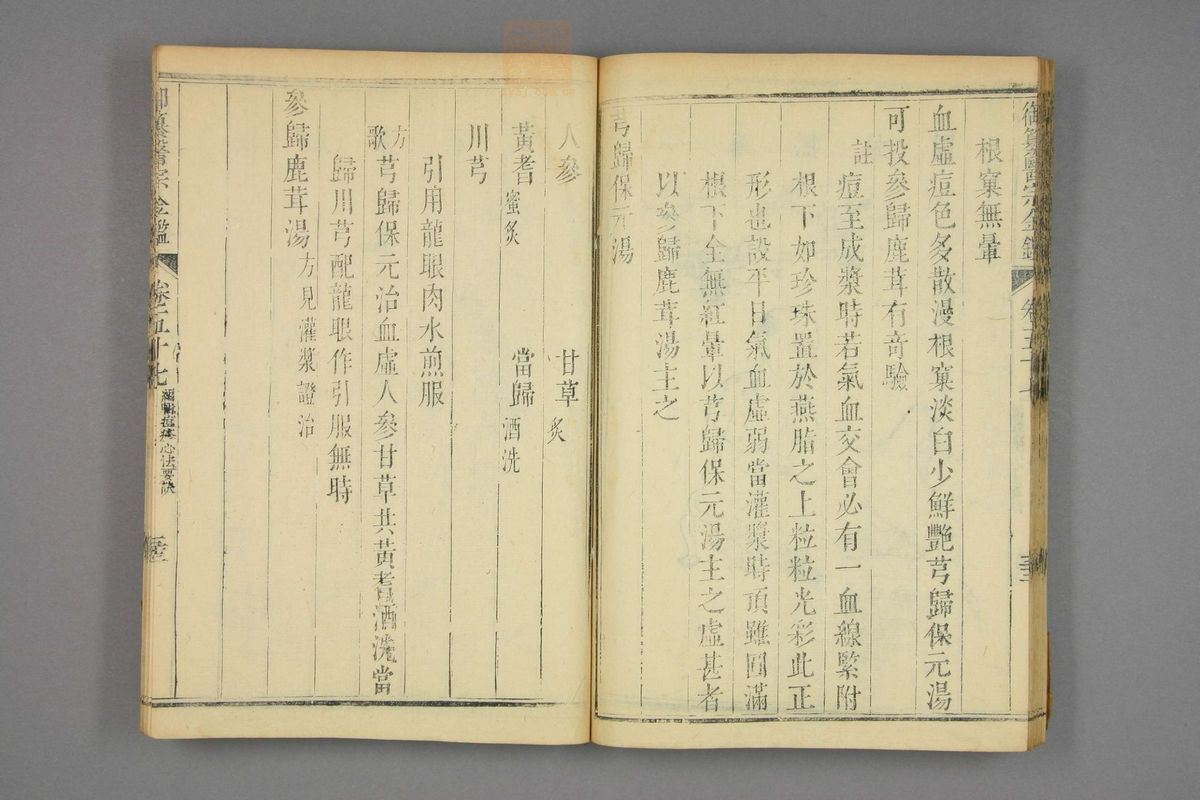 御纂醫宗金鑑 卷五十七
根窠無暈
血虛痘色多散漫根窠淡白少鮮艷芎歸保元湯
可投參歸鹿茸有奇驗
註痘至成漿時若氣血交會必有一血線緊附
根下如珍珠置於燕脂之上粒粒光彩此正
形也設平日氣血虛弱當灌漿時頂雖圓滿
根下全無紅暈以芎歸保元湯主之虛甚者
以參歸鹿茸湯主之
芎歸保元湯
人參 甘草炙
黃耆蜜炙 當歸酒洗
川芎
引用龍眼肉水煎服
方歌 芎歸保元治血虛人參甘草共黃耆酒洗當
歸川芎配龍眼作引服無時
參歸鹿茸湯方見灌漿證治
御纂醫宗金鑑 卷五十七 編輯痘疹心法要訣